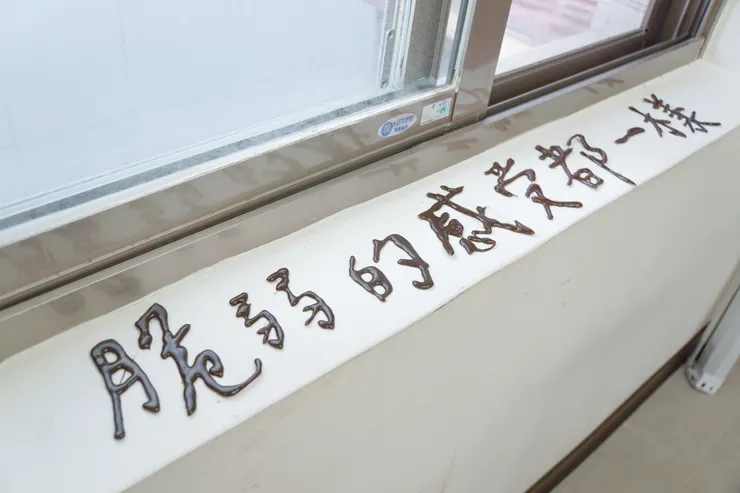 脆弱的感受都一樣